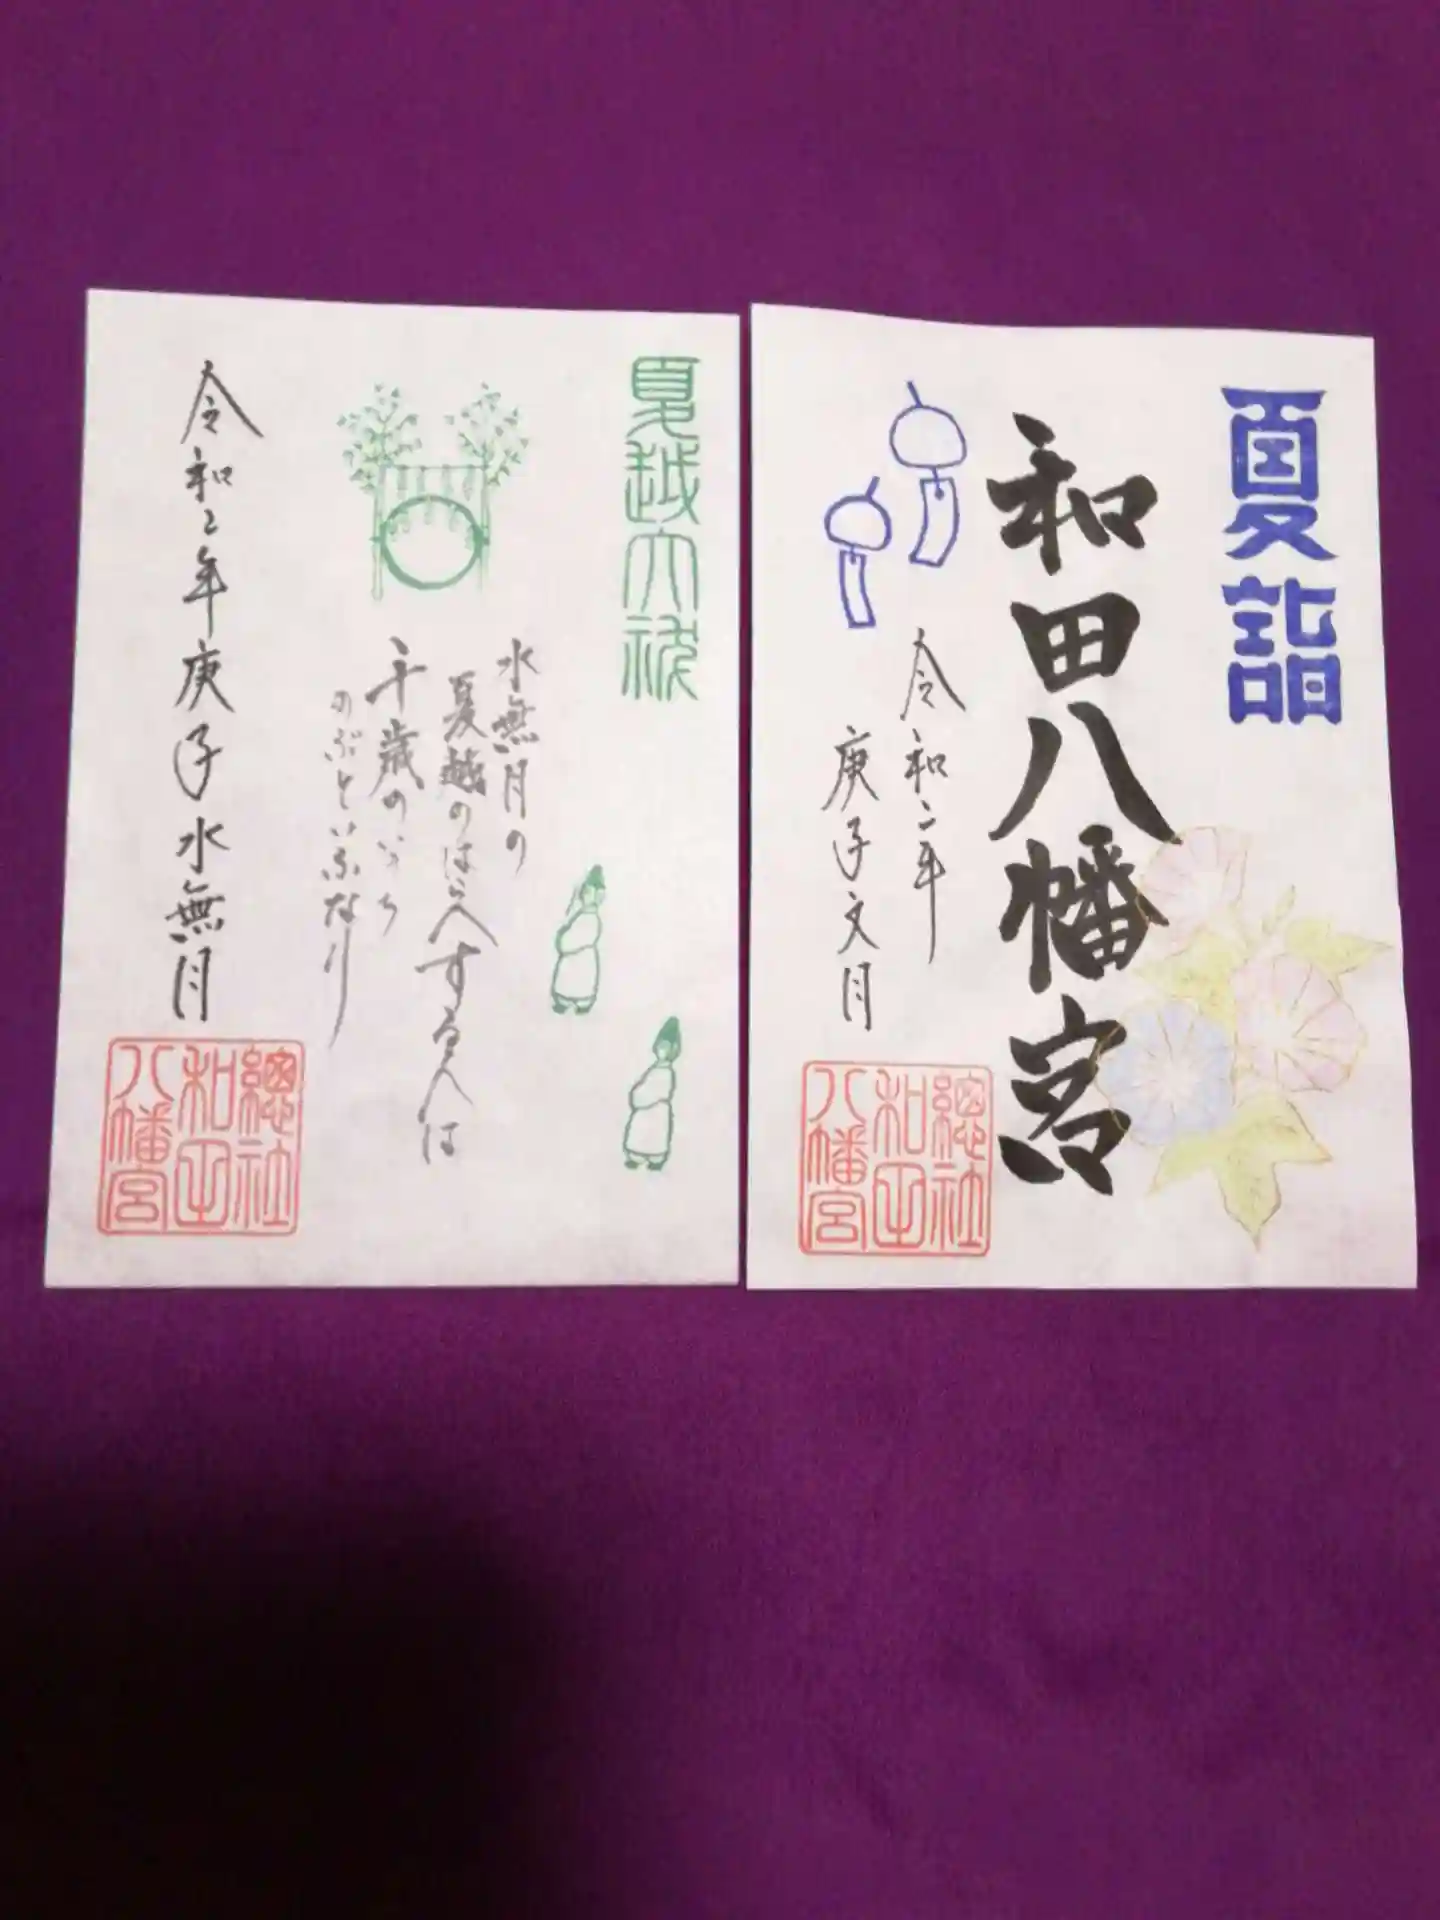 夏越大祓
水無月の
夏越のはらへする人は
千歳のいのち
のぶといふなり
令和二年庚子水無月
總社
和田
八幡宮
夏詣
和田八幡宮
令和二年
庚子文月
總社
和田
八幡宮